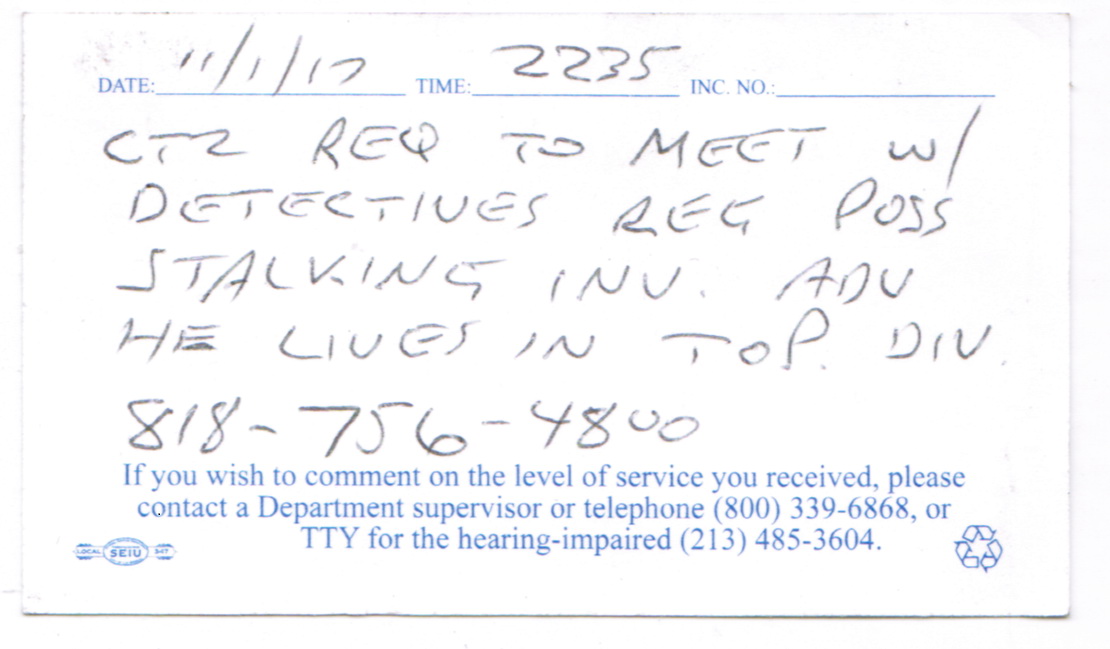 DATE: 11/1/17 TIME: 2235 INC. NO.:
CTZ REQ TO MEET W/
DETECTIVES REG POSS
STALKING INV. ADV
HE LIVES IN TOP. DIV.
818-756-4800
If you wish to comment on the level of service you received, please
contact a Department supervisor or telephone (800) 339-6868, or
TTY for the hearing-impaired (213) 485-3604.
LOCAL SEIU 347